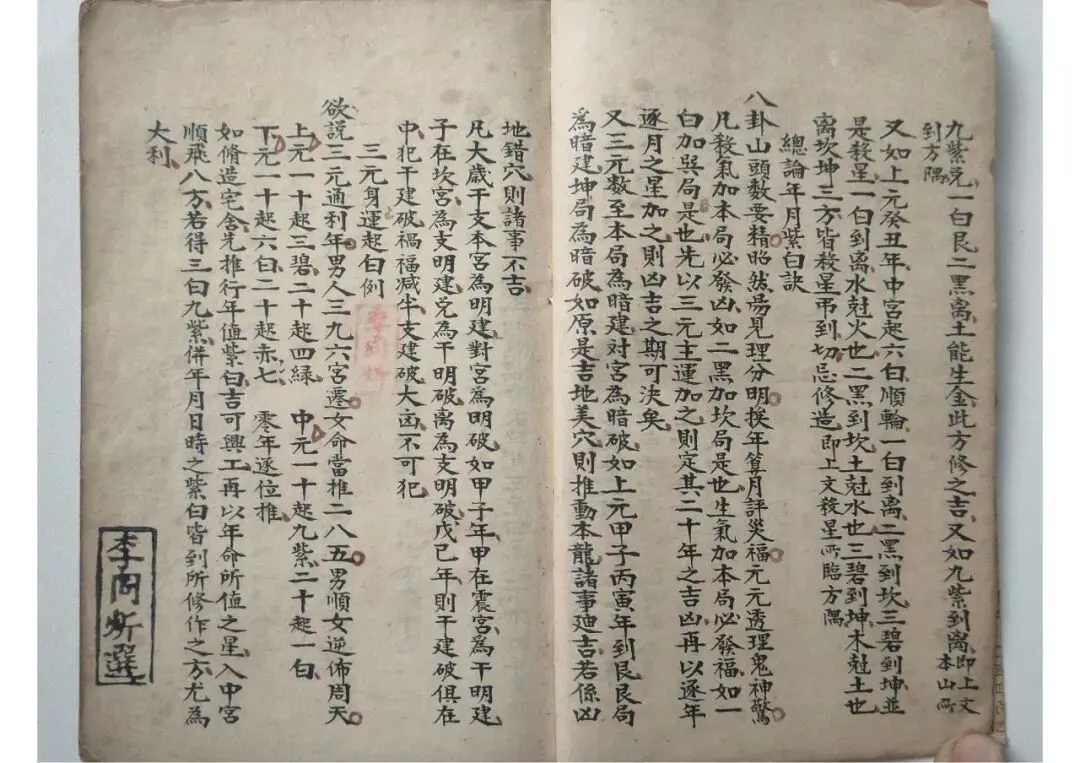 九紫兑一白艮二黑离土能生金此方修之吉又如九紫到离即上文本山所
到方隅
又如上元癸丑年中宮起六白順輪一白到離二黑到坎三碧到坤並
是殺星一白到離水尅火也二黑到坎土尅水也三碧到坤木尅土也
离坎坤三方皆殺星吊到切忌修造即上文殺星所臨方隅
總論年月紫白訣
八卦山頭數要精昭然易見理分明挨年算月評災福元元透理鬼神驚
凡殺氣加本局必發凶如二黑加坎局是也生氣加本局必發福如一
白加巽局是也先以三元主運加之則定其二十年之吉凶再以逐年
逐月之星加之則凶吉之期可決矣
又三元数至本局為暗建对宮為暗破如上元甲子丙寅年到艮艮局
為暗建坤局為暗破如原是吉地美穴則推動本龍諸事迪吉若係凶
地錯穴則諸事不吉
凡大歲干支本宮為明建對宮為明破如甲子年甲在震宮為干明建
子在坎宮為支明建兑為干明破离為支明破戊己年則干建破俱在
中犯干建破禍福减半支建破大凶不可犯
三元身運起白例
欲説三元通利年男人三九六宮遷女命當推二八五男順女逆佈周天
上元一十起三碧二十起四緑 中元一十起九紫二十起一白
下元一十起六白二十起赤七 零年逐位推
如脩造宅舍先推行年值紫白吉可興工再以年命所值之星入中宮
順飛八方若得三白九紫併年月日時之紫白皆到所修作之方尤為
大利